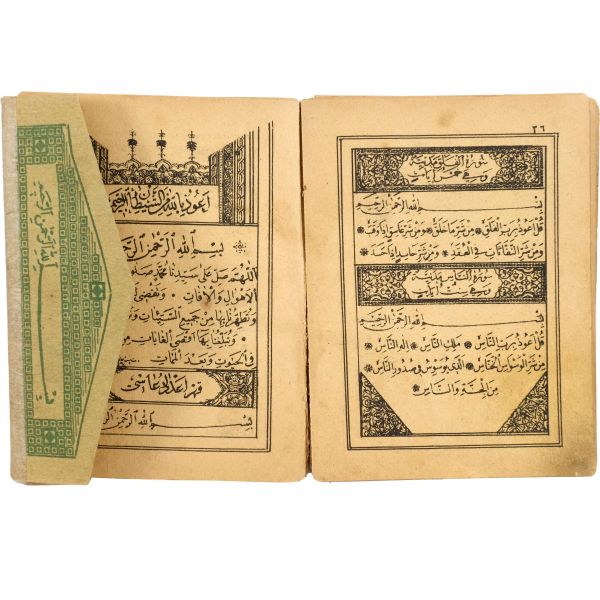 ٢٦
سورة الفلق مكية
وهي خمس آيات
بسم الله الرحمن الرحيم
قل اعوذ برب الفلق من شر ما خلق ومن شر غاسق اذا وقب
ومن شر النفاثات في العقد ومن شر حاسد اذا حسد
سورة الناس مدنية
وهي ست آيات
بسم الله الرحمن الرحيم
قل اعوذ برب الناس ملك الناس اله الناس
من شر الوسواس الخناس الذي يوسوس في صدور الناس
من الجنة والناس
اعوذ بالله من الشيطان الرجيم
بسم الله الرحمن
اللهم صل على سيدنا محمد
الاهوال والآفات وتقضى
وتطهرنا بها من جميع السيئات
وتبلغنا بها اقصى الغايات
في الحيوة وبعد الممات
بسم الله الرحمن
بسم الله الرحمن الرحيم